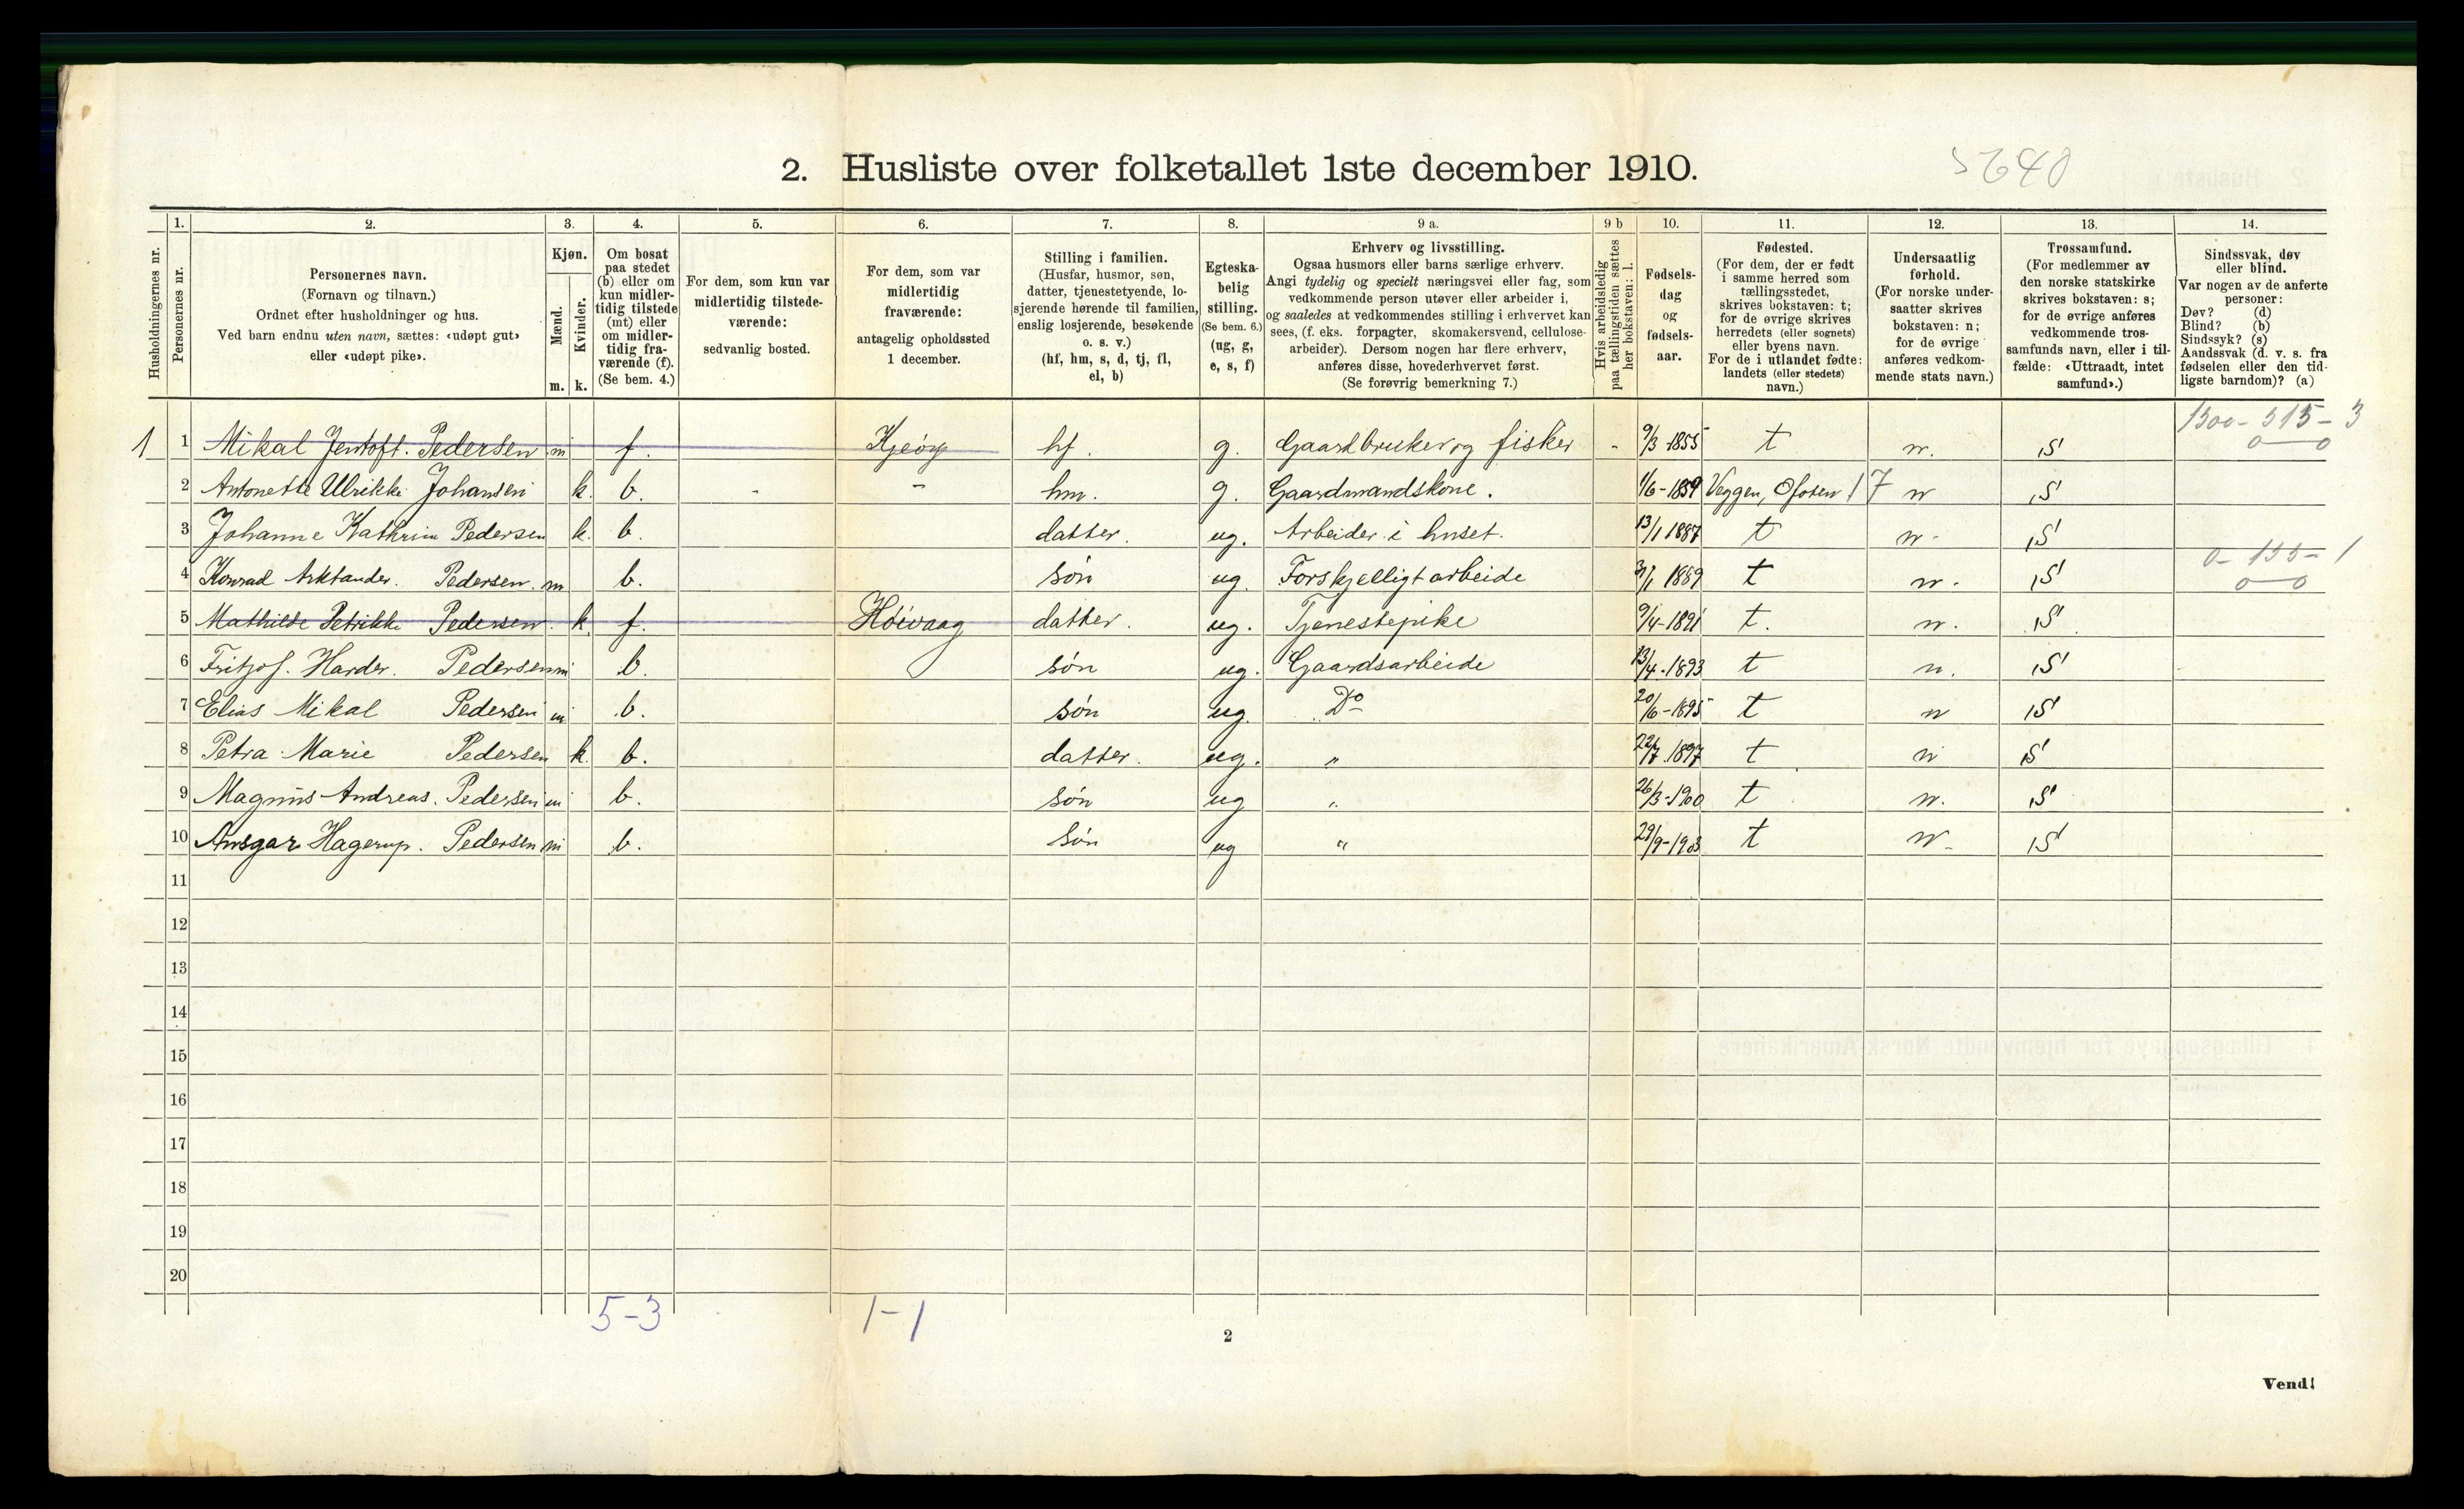 2. Husliste over folketallet 1ste december 1910.
5640
1. 2. 3. 4. 5. 6. 7. 8. 9 a. 9 b 10. 11. 12. 13. 14.
Husholdningernes nr.
Personernes nr.
Personernes navn.
(Fornavn og tilnavn.)
Ordnet efter husholdninger og hus.
Ved barn endnu uten navn, sættes: «udøpt gut»
eller «udøpt pike».
Kjøn.
Mænd.
Kvinder.
m. k.
Om bosat
paa stedet
(b) eller om
kun midler-
tidig tilstede
(mt) eller
om midler-
tidig fra-
værende (f).
(Se bem. 4.)
For dem, som kun var
midlertidig tilstede-
værende:
sedvanlig bosted.
For dem, som var
midlertidig
fraværende:
antagelig opholdssted
1 december.
Stilling i familien.
(Husfar, husmor, søn,
datter, tjenestetyende, lo-
sjerende hørende til familien,
enslig losjerende, besøkende
o. s. v.)
(hf, hm, s, d, tj, fl,
el, b)
Egteska-
belig
stilling.
(Se bem. 6.)
(ug, g,
e, s, f)
Erhverv og livsstilling.
Ogsaa husmors eller barns særlige erhverv.
Angi tydelig og specielt næringsvei eller fag, som
vedkommende person utøver eller arbeider i,
og saaledes at vedkommendes stilling i erhvervet kan
sees, (f. eks. forpagter, skomakersvend, cellulose-
arbeider). Dersom nogen har flere erhverv,
anføres disse, hovederhvervet først.
(Se forøvrig bemerkning 7.)
Hvis arbeidsledig
paa tællingstiden sættes
her bokstaven: l.
Fødsels-
dag
og
fødsels-
aar.
Fødested.
(For dem, der er født
i samme herred som
tællingsstedet,
skrives bokstaven: t;
for de øvrige skrives
herredets (eller sognets)
eller byens navn.
For de i utlandet fødte:
landets (eller stedets)
navn.)
Undersaatlig
forhold.
(For norske under-
saatter skrives
bokstaven: n;
for de øvrige
anføres vedkom-
mende stats navn.)
Trossamfund.
(For medlemmer av
den norske statskirke
skrives bokstaven: s;
for de øvrige anføres
vedkommende tros-
samfunds navn, eller i til-
fælde: «Uttraadt, intet
samfund».)
Sindssvak, døv
eller blind.
Var nogen av de anførte
personer:
Døv? (d)
Blind? (b)
Sindssyk? (s)
Aandssvak (d. v. s. fra
fødselen eller den tid-
ligste barndom)? (a)
1500-515-3
1 1 Mikal Jentoft. Pedersen m f. Kjeöy hf. g. Gaardbruker og fisker - 9/3-1855 t n. S 0-0
2 Antonette Ulrikke Johansen k. b. - - hm. g. Gaardmandskone. 1/6-1859 Veggen, Ofoten 17 n S
3 Johanne Kathrine Pedersen k. b. datter. ug. Arbeider i huset. 13/1 1887 t n- S
0-155-1
4 Konrad Arktander. Pedersen. m b. søn ug. Forskjelligt arbeide 31/1 1889 t n. S 0-0
5 Mathilde Petrikke Pedersen. k. f. Höivaag datter. ug. Tjenestepike 9/4-1891 t. n. S
6 Fritjof. Harder. Pedersen m b. søn ug. Gaardsarbeide 13/4-1893 t n. S
7 Elias Mikal Pedersen m b. søn ug. Do 20/6-1895 t n S
8 Petra Marie Pedersen k. b. datter. ug. " 22/7 1897 t n S
9 Magnus Andreas. Pedersen m b. søn ug " 26/3-1900 t n. S
10 Ansgar Hagerup. Pedersen m b. søn ug " 29/9-1903 t n- S
11
12
13
14
15
16
17
18
19
20
5-3 1-1
2
Vend!